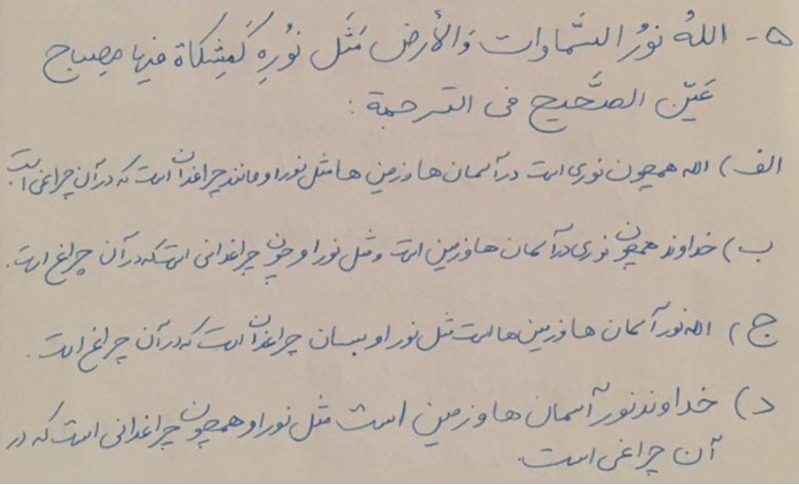 ۵- اللهُ نورُ السَّماوات وَالأرض مَثَل نُورِهِ كَمِشكاة فيها مِصباح
عَيّن الصَّحيح فى الترجمة :
الف) الله همچون نوری است در آسمان ها و زمین ها مثل نور او مانند چراغدان است که در آن چراغی است
ب) خداوند همچون نوری در آسمان ها و زمین است و مثل نور او چون چراغدانی است که در آن چراغ است.
ج) الله نور آسمان ها و زمین ها است مثل نور او بسان چراغدان است که در آن چراغ است.
د) خداوند نور آسمان ها و زمین است مثل نور او همچون چراغدانی است که در
آن چراغی است.